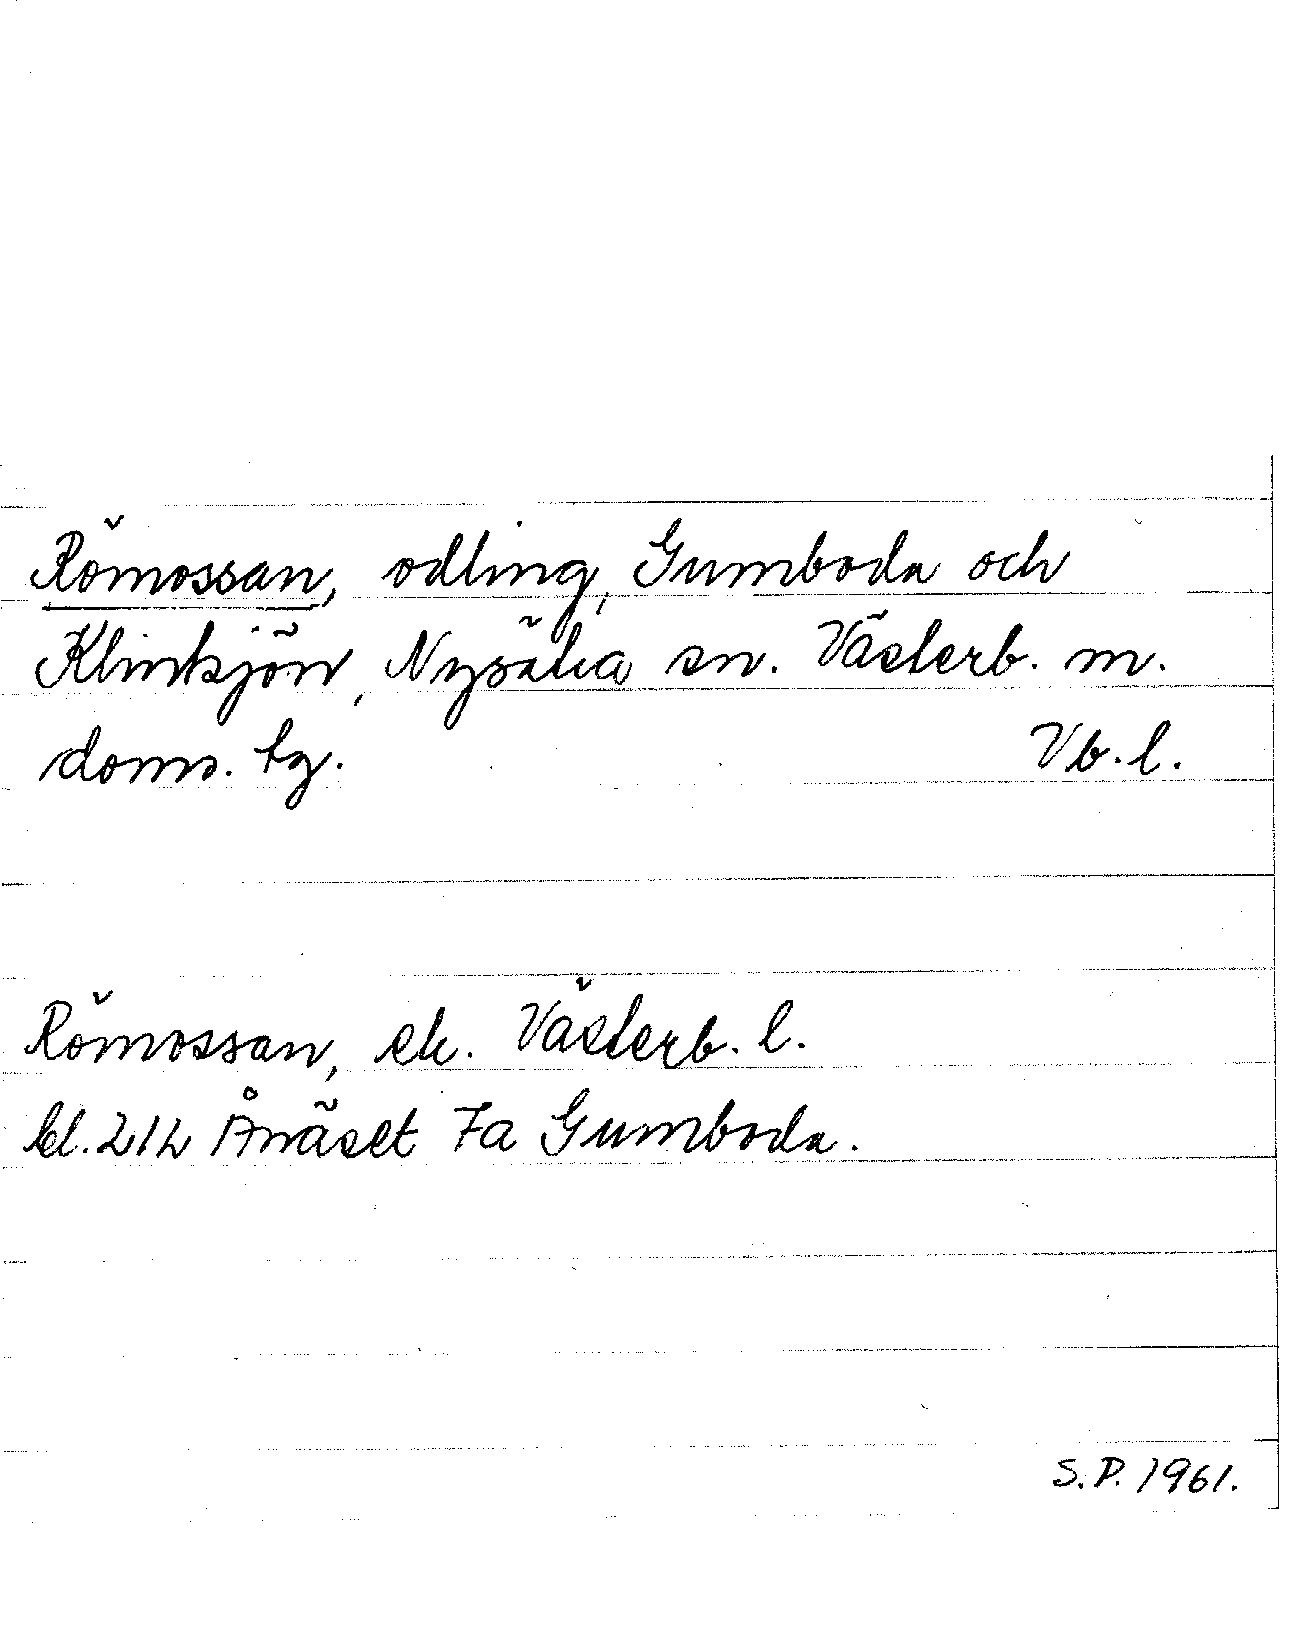 Römossan, odling, Gumboda och
Klintsjön, Nysätra sn. Västerb. m.
doms. tg. Vb. l.
Römossan, ek. Västerb. l.
bl. 212 Ånäset 7a Gumboda.
S.P. 1961.